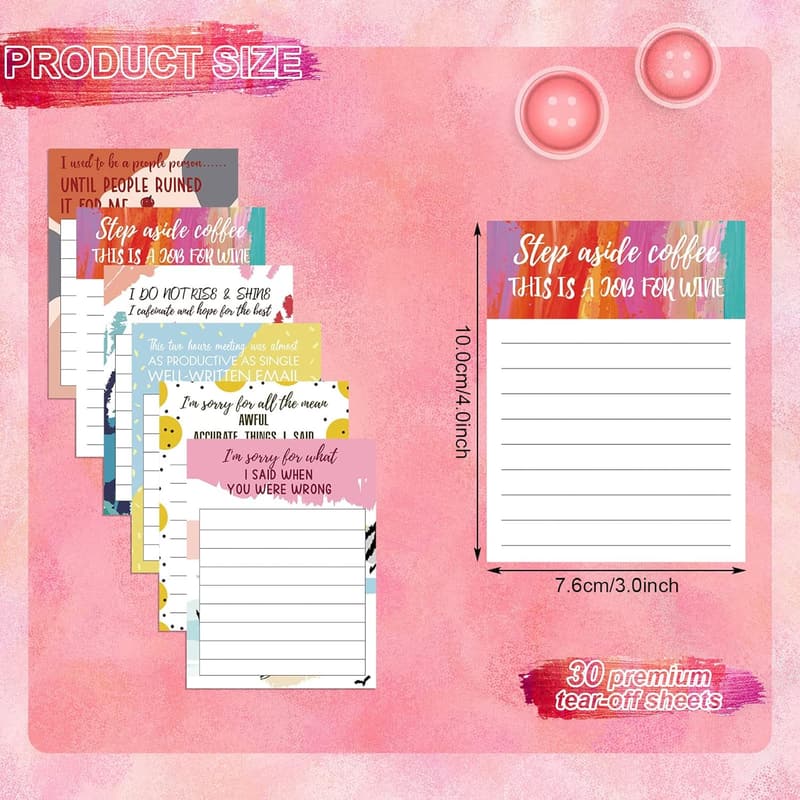 PRODUCT SIZE
I used to be a people person......
UNTIL PEOPLE RUINED
IT FOR ME
Step aside coffee
THIS IS A JOB FOR WINE
I DO NOT RISE & SHINE
I caffeinate and hope for the best
This two hours meeting was almost
AS PRODUCTIVE AS SINGLE
WELL-WRITTEN EMAIL
I'm sorry for all the mean
AWFUL
ACCURATE THINGS I SAID
I'm sorry for what
I SAID WHEN
YOU WERE WRONG
Step aside coffee
THIS IS A JOB FOR WINE
10.0cm/4.0inch
7.6cm/3.0inch
30 premium
tear-off sheets